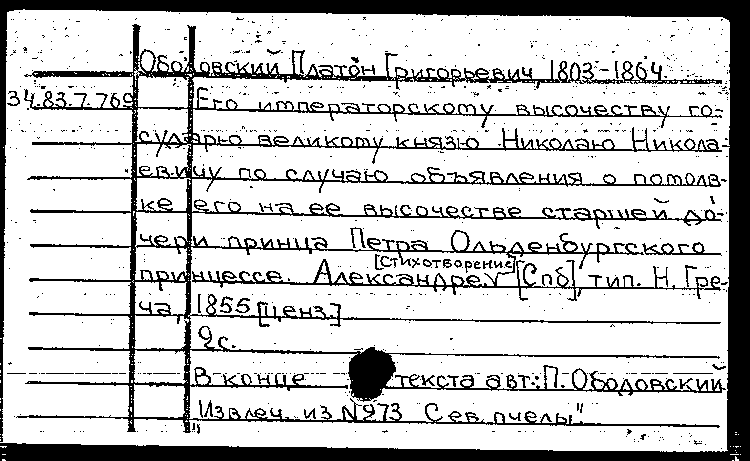 Ободовский, Платон Григорьевич, 1803-1864.
34.83.7.769 Его императорскому высочеству го-
сударю великому князю Николаю Никола-
евичу по случаю объявления о помолв-
ке его на ее высочестве старшей до-
чери принца Петра Ольденбургского
принцессе Александре. [Стихотворение] [Спб], тип. Н. Гре-
ча, 1855 [ценз.]
2с.
В конце текста авт.: П. Ободовский
Извлеч. из N273 Сев. пчелы".